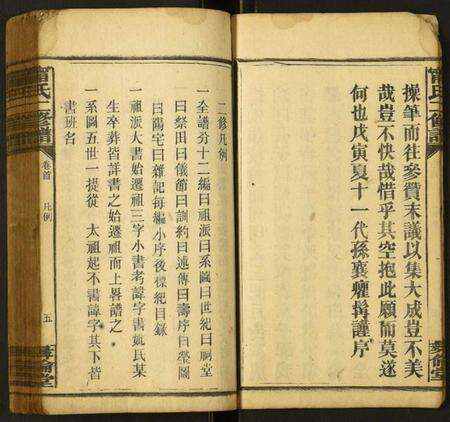 操筆而往參贊末議以集大成豈不美
哉豈不快哉惜乎其空抱此願而莫遂
何也戊寅夏十一代孫襄糶髯謹序
二修凡例
一全譜分十二編曰祖派曰系圖曰世紀曰祠堂
曰祭田曰儀節曰訓約曰述傳曰壽序曰塋圖
曰陽宅曰雜記每編小序後標紀目錄
一祖派大書始遷祖三字小書考諱字妣氏某
生卒葬皆詳書之始遷祖而上畧譜之
一系圖五世一提從 太祖起不書諱字其下皆
書班名
氏二修譜
卷首
凡例
五